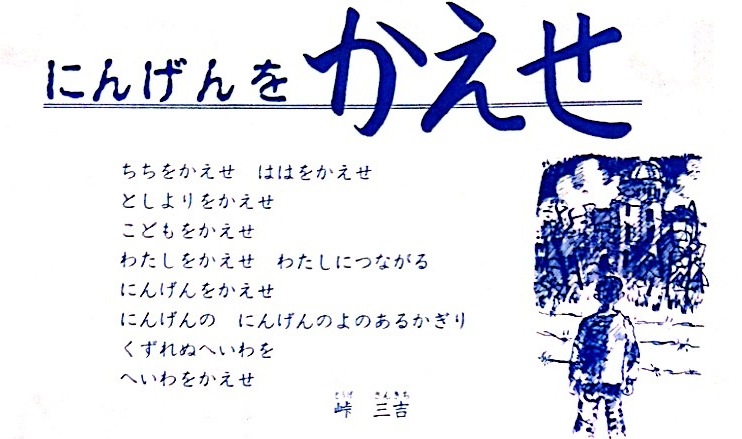 にんげんを かえせ
ちちをかえせ　ははをかえせ
としよりをかえせ
こどもをかえせ
わたしをかえせ　わたしにつながる
にんげんをかえせ
にんげんの　にんげんのよのあるかぎり
くずれぬへいわを
へいわをかえせ
とうげ　さんきち
峠　三吉